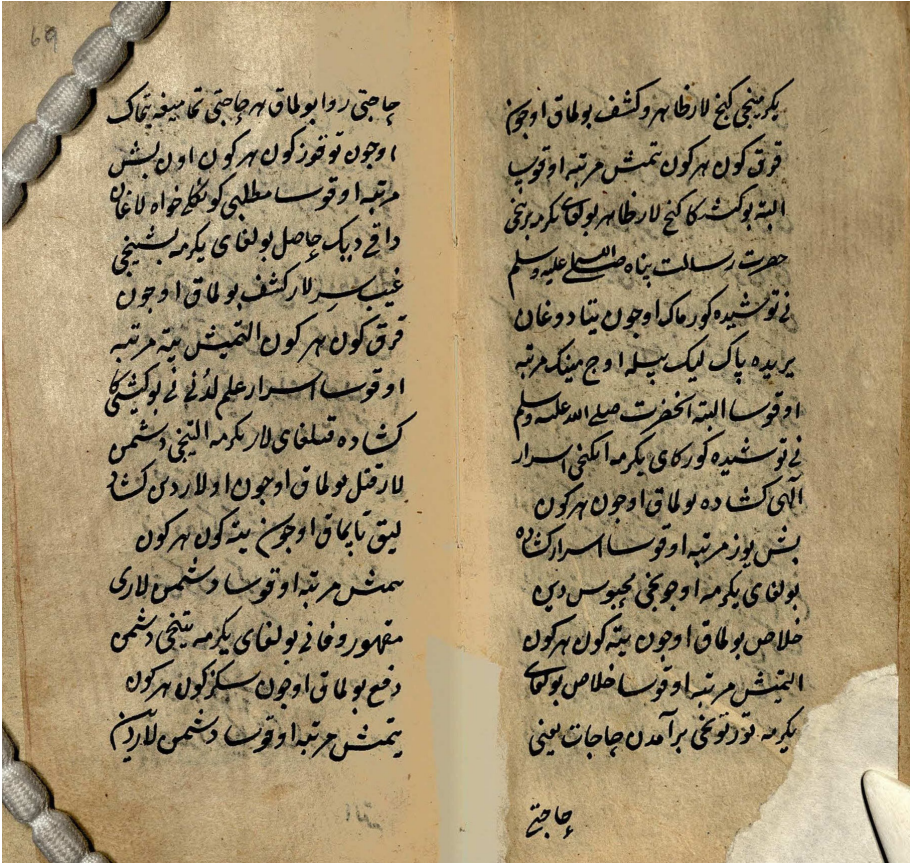 یکرمینجی کنج لار ظاهر و کشف بولماق اوجون
قرق کون هر کون یتمش مرتبه اوقوب
البته بو کشیکا کنج لار ظاهر بولغای یکرمه برنجی
حضرت رسالت پناه صلی الله علیه وسلم
نی توشیده کورماک اوجون یتادوغان
یریده پاک لیک بیله اوج مینک مرتبه
اوقوسا البته انحضرت صلی الله علیه وسلم
نی توشیده کورکای یکرمه ایکنجی اسرار
الهی کشاده بولماق اوجون هر کون
بش یوز مرتبه اوقوسا اسرار کشاده
بولغای یکرمه اوجونجی محبوس دین
خلاص بولماق اوجون یته کون هر کون
التمیش مرتبه اوقوسا خلاص بولغای
یکرمه تورتونجی برآمدن حاجات یعنی
حاجتی
حاجتی روا بولماق هر حاجتی تمامیغه یتماک
اوجون توقوز کون هر کون اون بش
مرتبه اوقوسا مطلبی کونکلی خواه لاغان
داقی دیک حاصل بولغای یکرمه بشینجی
غیب سر لار کشف بولماق اوجون
قرق کون هر کون التمیش یته مرتبه
اوقوسا اسرار علم لدنی نی بو کیشیکا
کشاده قیلغای لار یکرمه التینجی دشمن
لار قتل بولماق اوجون اولاردین کشاد
لیق تاپماق اوجون یته کون هر کون
یتمش مرتبه اوقوسا دشمن لاری
مقهور و فانی بولغای یکرمه یتنجی دشمن
دفع بولماق اوجون سکز کون هر کون
یتمش مرتبه اوقوسا دشمن لاردین
69